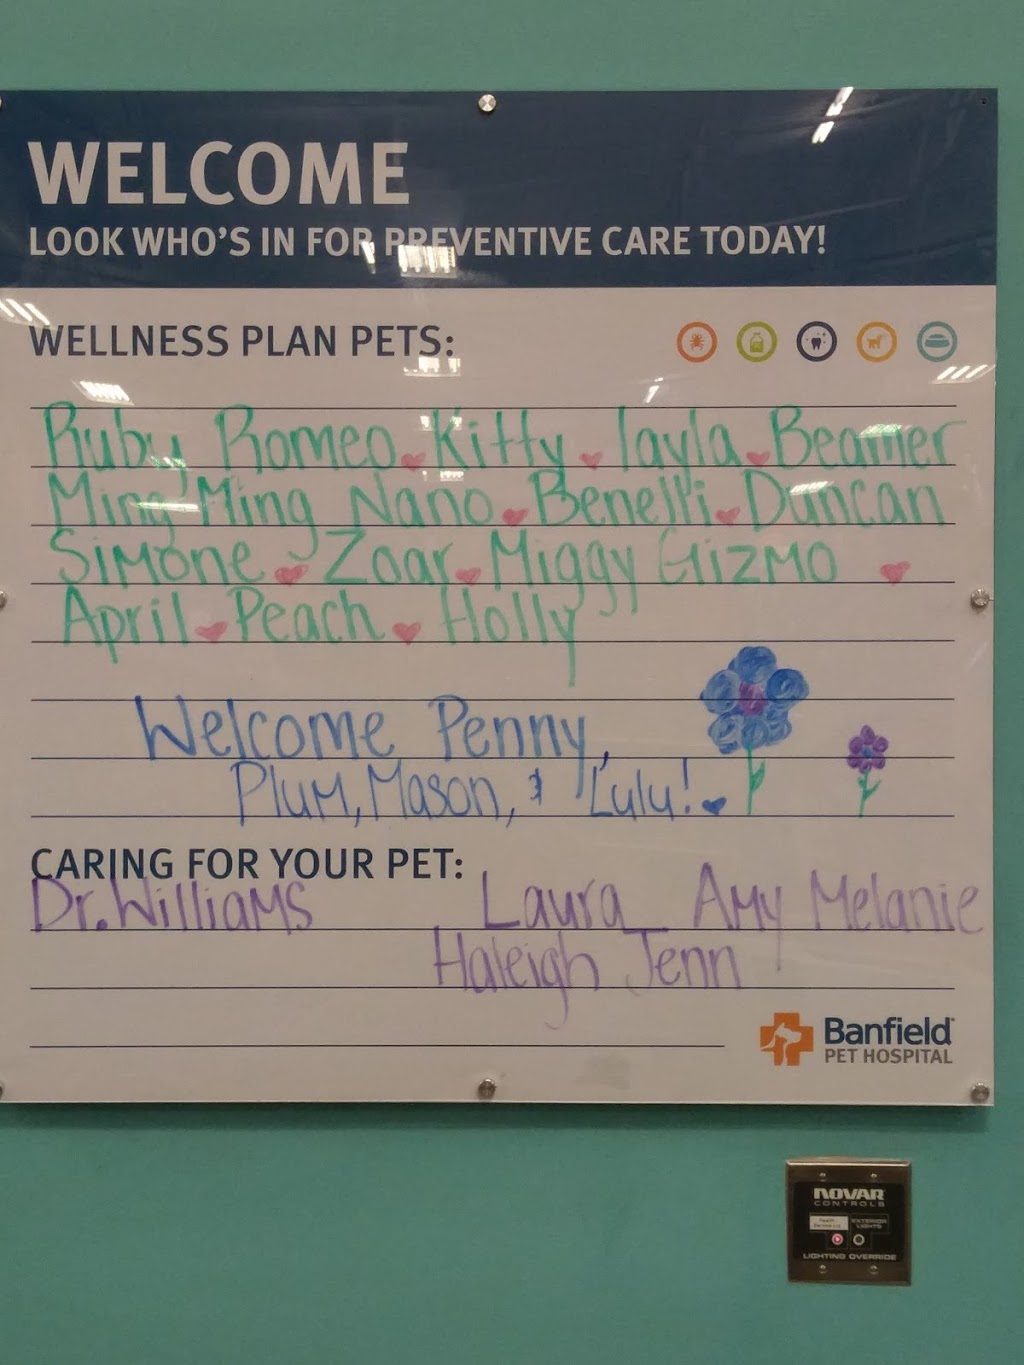 WELCOME
LOOK WHO'S IN FOR PREVENTIVE CARE TODAY!
WELLNESS PLAN PETS:
Ruby Romeo Kitty layla Beamer
Ming Ming Nano Benelli Duncan
Simone Zoar Miggy Gizmo
April Peach Holly
Welcome Penny,
Plum, Mason, & Lulu!
CARING FOR YOUR PET:
Dr. Williams Laura Amy Melanie
Haleigh Jenn
Banfield
PET HOSPITAL
NOVAR
CONTROLS
EXTERIOR
LIGHTS
LIGHTING OVERRIDE